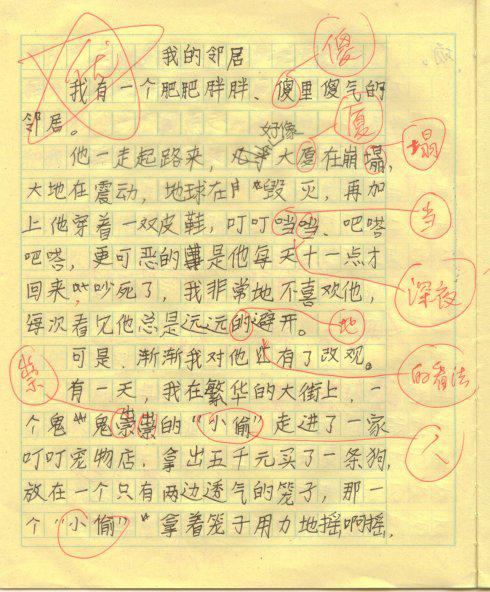 优
我的邻居
傻
我有一个肥肥胖胖、傻里傻气的
邻居。
厦
好像
塌
他一走起路来，大厦在崩塌，
大地在震动，地球在毁灭，再加
上他穿着一双皮鞋，叮叮当当、吧嗒
当
吧嗒，更可恶的是他每天十一点才
深夜
回来吵死了，我非常地不喜欢他，
每次看见他总是远远的避开。
地
可是，渐渐我对他有了改观。
的看法
祟
有一天，我在繁华的大街上，一
个鬼鬼祟祟的“小偷”走进了一家
人
叮叮宠物店，拿出五千元买了一条狗，
放在一个只有两边透气的笼子，那一
个“小偷”拿着笼子用力地摇啊摇，